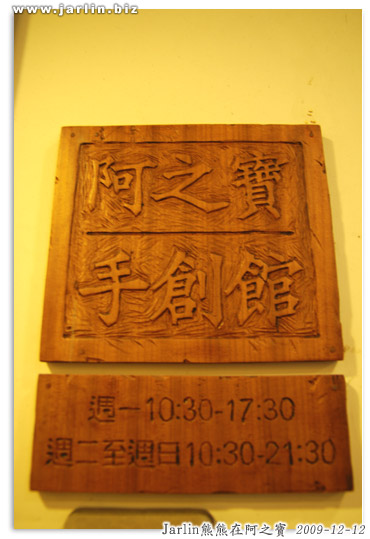 www.jarlin.biz
阿之寶
手創館
週一10:30-17:30
週二至週日10:30-21:30
Jarlin熊熊在阿之寶 2009-12-12